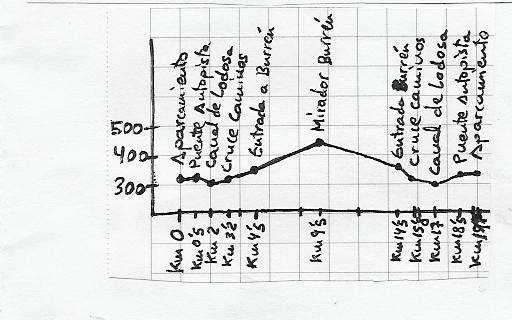 500
400
300
Aparcamiento
Puente Autopista
Canal de Lodosa
Cruce Caminos
Entrada a Burrén
Mirador Burrén
Entrada Burrén
Cruce caminos
Canal de Lodosa
Puente autopista
Aparcamiento
Km 0
Km 0'5
Km 2
Km 4'5
Km 9'5
Km 14'5
Km 17
Km 18'5